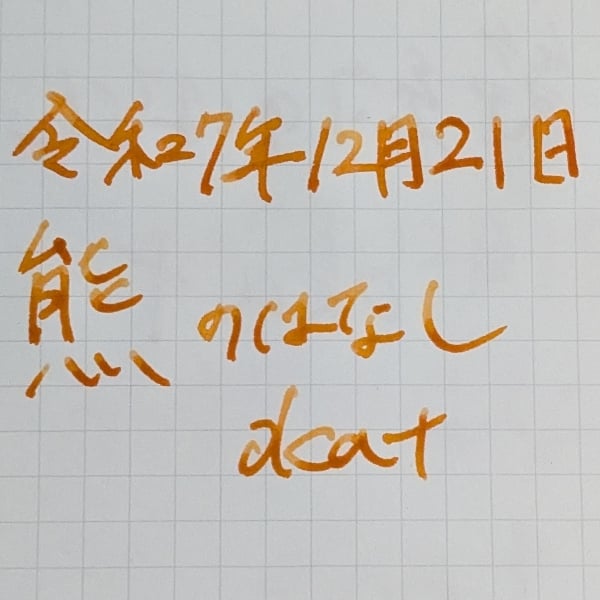 令和7年12月21日
熊のはなし
dcat